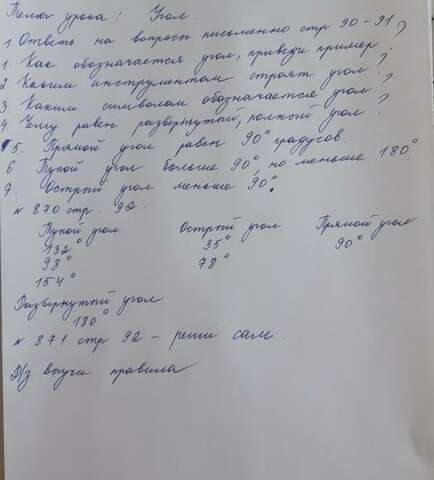 Тема урока: Угол.
1 Ответь на вопросы письменно стр 90-91
1. Как обозначается угол, приведи пример?
2 Каким инструментом строят угол?
3 Каким символом обозначается угол?
4 Чему равен развернутый, полный угол?
5. Прямой угол равен 90° градусов.
6. Тупой угол больше 90°, но меньше 180°
7. Острый угол меньше 90°.
№ 870 стр. 92.
Тупой угол Острый угол Прямой угол
132° 35° 90°
98° 78°
154°
Развернутый угол
180°
№ 871 стр 92 - реши сам.
Д/з выучи правила